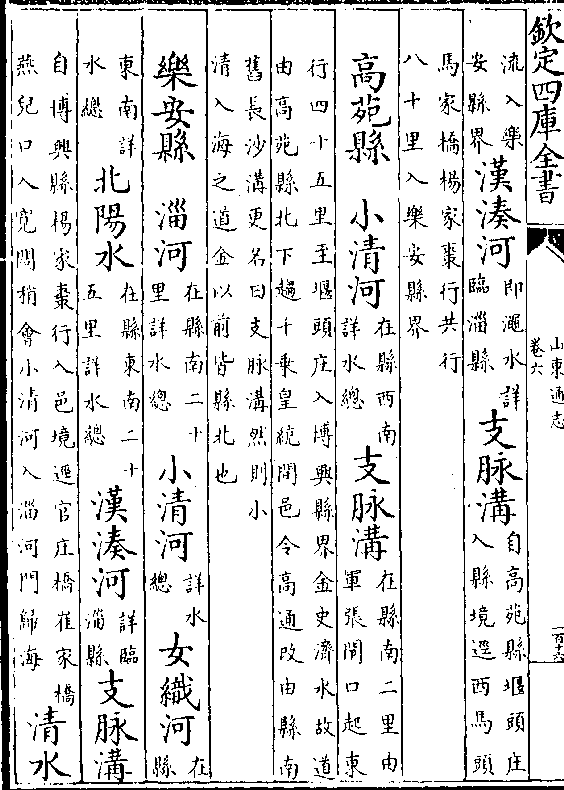 欽定四庫全書
山東通志
卷六
一百十六
流入樂安縣界 漢湊河 即澠水詳臨淄縣 支脉溝 自高苑縣堰頭庄入縣境逕西馬頭
馬家橋楊家棗行共行八十里入樂安縣界
高苑縣 小清河 在縣西南詳水總 支脉溝 在縣南二里由軍張閘口起東
行四十五里至堰頭庄入博興縣界金史濟水故道由高苑縣北下趨千乗皇統間邑令高通改由縣南
舊長沙溝更名曰支脉溝然則小清入海之道金以前皆縣北也
樂安縣 淄河 在縣南二十里詳水總 小清河 詳水總 女織河 在縣
東南詳水總 北陽水 在縣東南二十五里詳水總 漢湊河 詳臨淄縣 支脉溝
自博興縣楊家棗行入邑境逕官庄橋崔家橋燕兒口入寛閘稍會小清河入淄河門歸海 清水